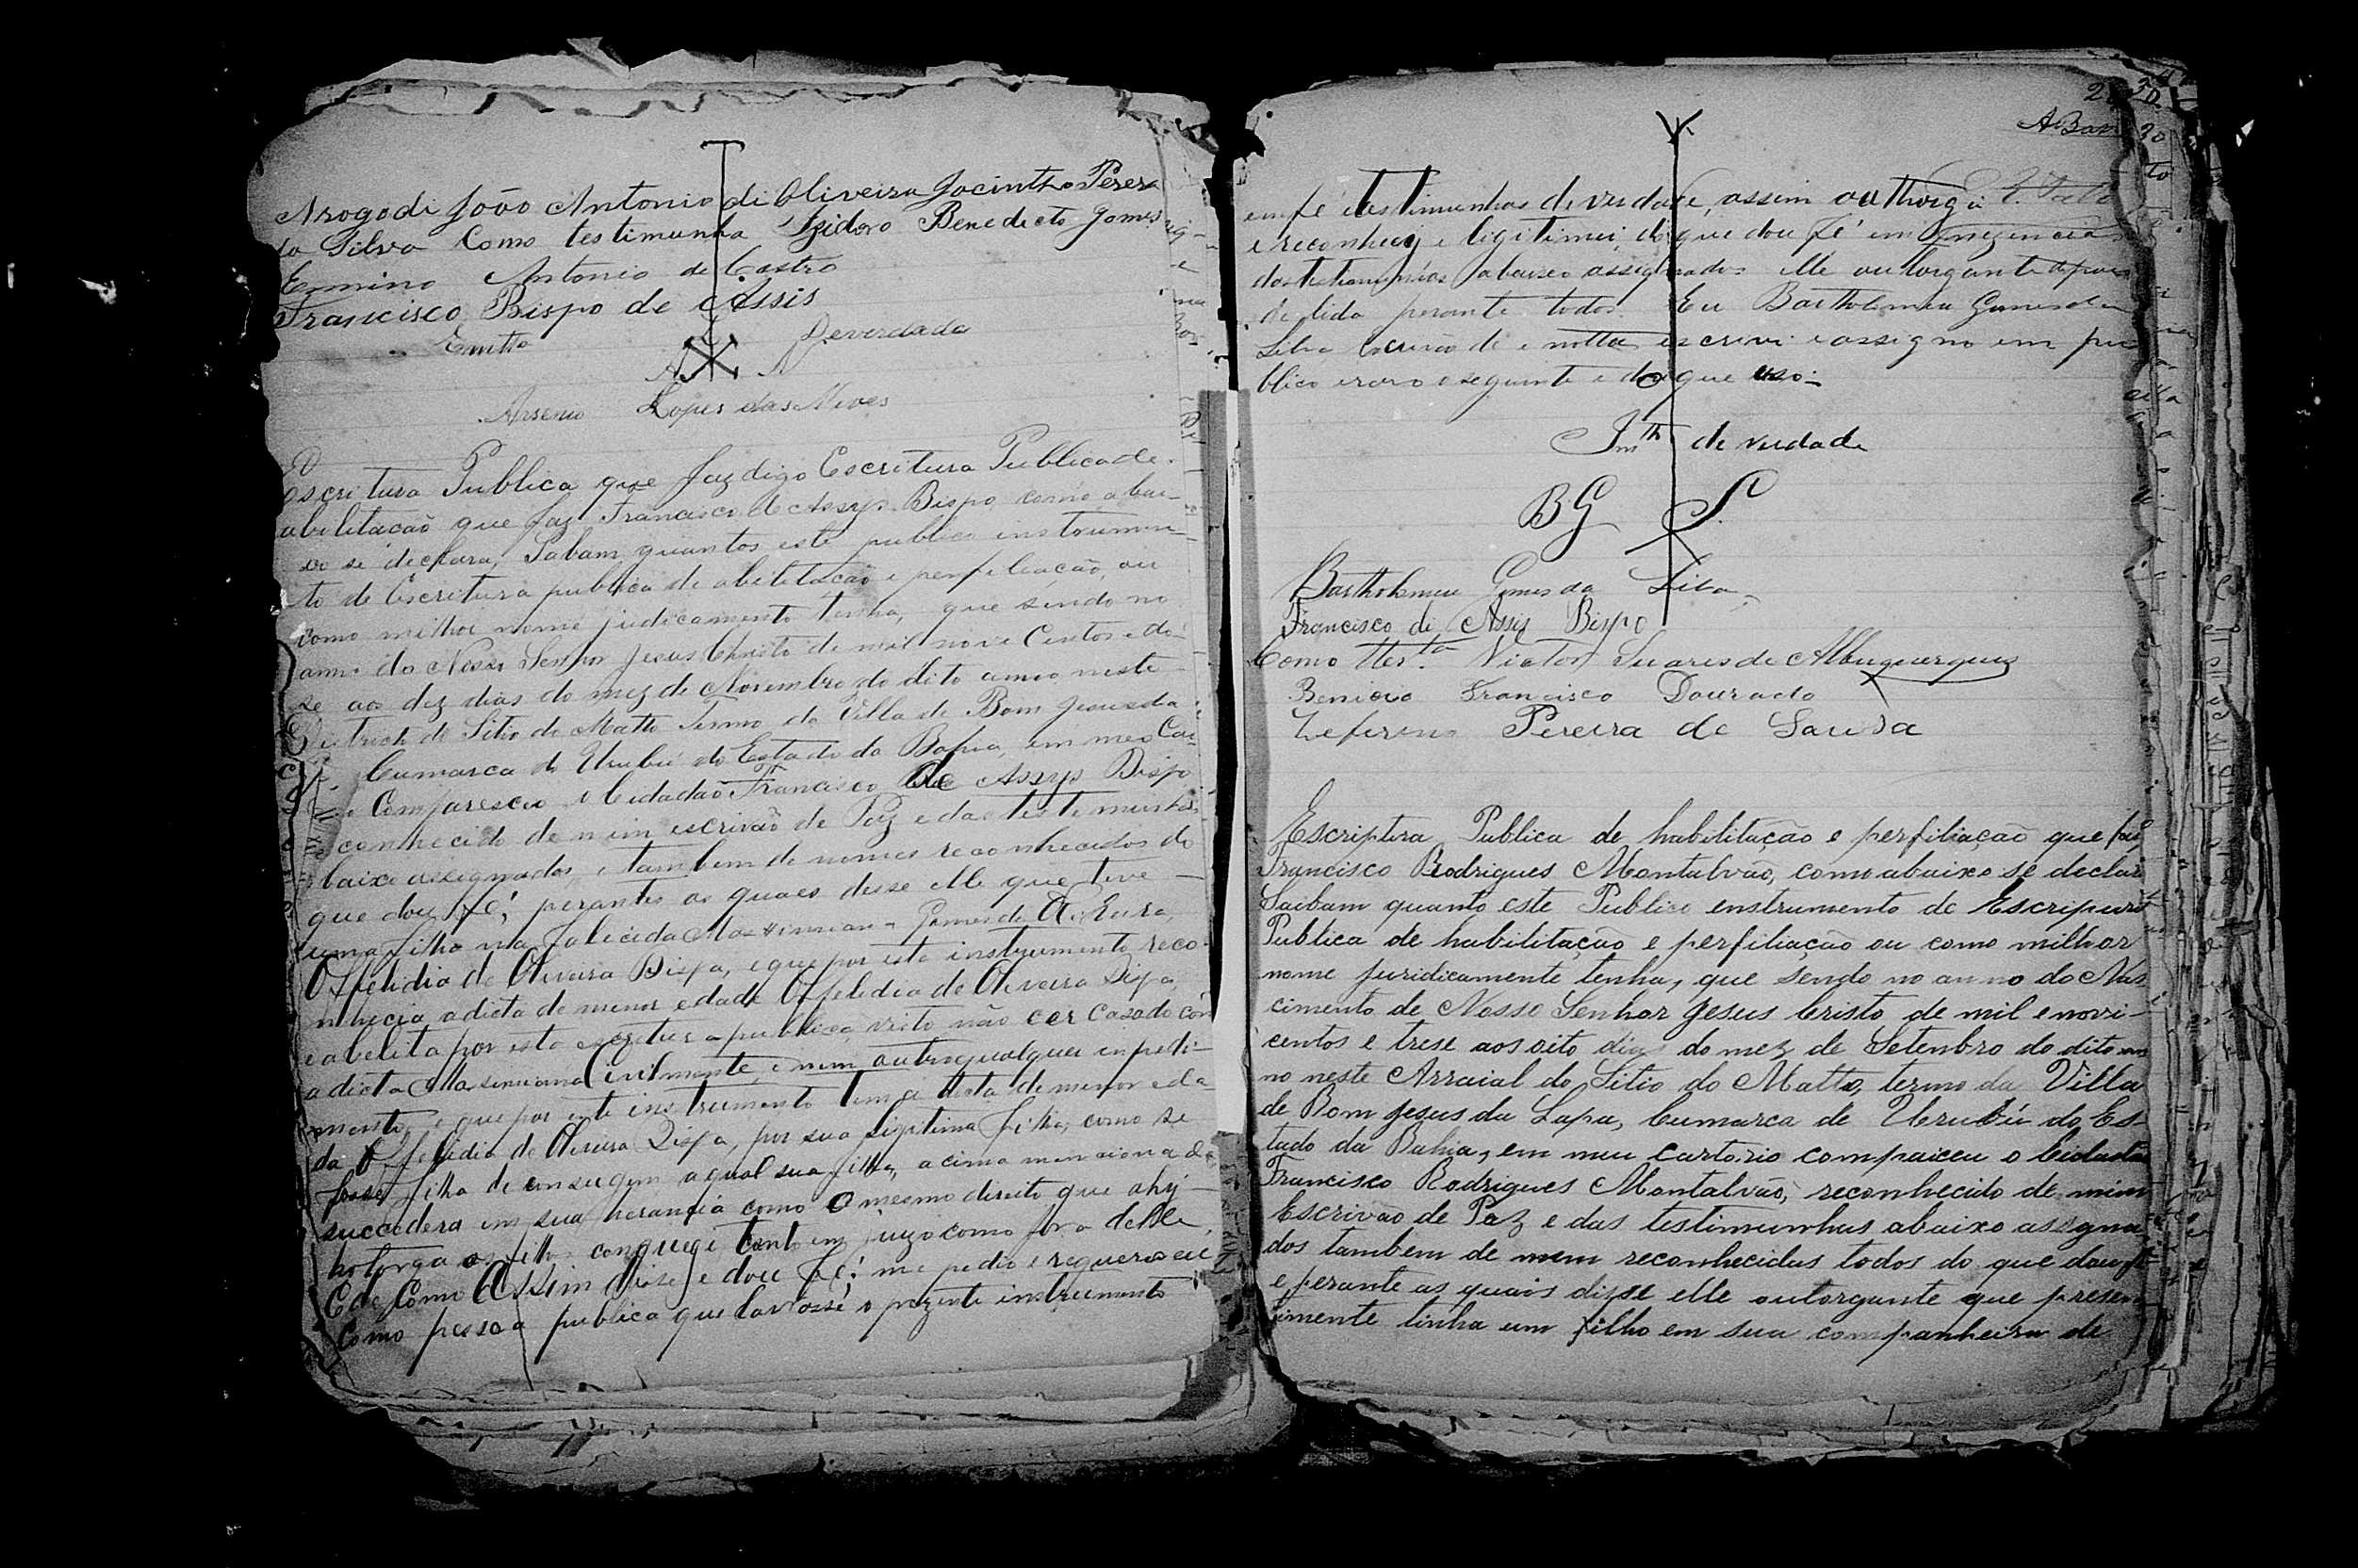 Arogo di João Antonio di Oliveira Jacintho Perera
da Silva Como testimunha Izidoro Benedicto Gomes
Ermino Antonio de Castro
Francisco Bispo de Assis
Emtto Deverdade
A N
Arsenio Lopes das Neves
Escritura Publica que faz digo Escritura Publica de
abilitacão que faz Francisco de Assys Bispo como abai-
xo se declara, Sabam quantos este publico instrumen-
to de Escritura publica de abilitacão e perfiliacão, ou
como milhor nome judicamente tenha, que sendo no
anno do Nosso Senhor Jesus Christo de mil nove Centos e do-
se aos dez dias do mez de Novembro do dito anno neste
Districto de Sitio do Matto Termo da Villa de Bom Jesus da
Cumarca do Urubú do Estado da Bahia, em meo Car-
Comparesceu o Cidadão Francisco de Assys Bispo
conhecido de mim escrivão de Paz e das testemunhas
baixo assignados, e tambem de nomes reconhecidos do
que dou fé; perantes as quaes disse elle que teve
uma filha na falicida Gomes de
Offelidia de Oliveira Bispa, e que por este instrumento reco-
nhecia a dicta de menor edade Offelidia de Oliveira Bispa,
e abelita por esta escritura publica, visto não cer Casado con
a dicta Civilmente, e nem outro qualquer inpedi-
mento, e que por este instrumento tem a dicta de menor eda
da Offelidia de Oliveira Bispa, por sua ligitima filha, como se
fosse filha de a qual sua filha, acima mencionada
succedera em sua herancia como o mesmo direito que a hy-
os filhos tanto em juizo como fora delle,
Como Assim disse e dou fé; me pedio e requereo eu
como pessoa publica que lavrasse o prezente instrumento
ABar
em fé testimunhas di verdade, assim outhorga
e reconheci e ligitimei, do que dou fé em
das testemunhas abaixo assignados elle outorgante depois
de lida perante todos. Eu Bartholomeu Gomes da
Silva Escrivão di e notta escrivi e assigno em pu
blico e razo o seguinte e do que uso.
Em th de verdade
BG S.
Bartholomeu Gomes da Silva
Francisco di Assis Bispo
Como ttes.ta Victor Suares de Albuquerque
Benicio Francisco Dourado
Zeferino Pereira de Souza
Escriptura Publica de habilitação e perfiliação que faz
Francisco Rodrigues Montalvão, como abaixo se declar
Saibam quanto este Publico enstrumento de Escripura
Publica de habilitação e perfiliação ou como milhor
nome juridicamente tenha, que sendo no anno do Nas
cimento de Nosso Senhor Jesus Cristo de mil e novi-
centos e trese aos oito dias do mez de Setenbro do dito an
no neste Arraial do Sitio do Matto, termo da Villa
de Bom Jesus da Lapa, Cumarca de Urubú do Es-
tado da Bahia, em meu cartorio compaiceu o Cidadão
Francisco Rodrigues Montalvão, reconhecido de mim
Escrivão de Paz e das testimunhas abaixo assigna
dos tambem de mem reconhecidas todos do que dou fé
e perante as quais disse elle outorgante que presen
temente tinha um filho em sua companheira de